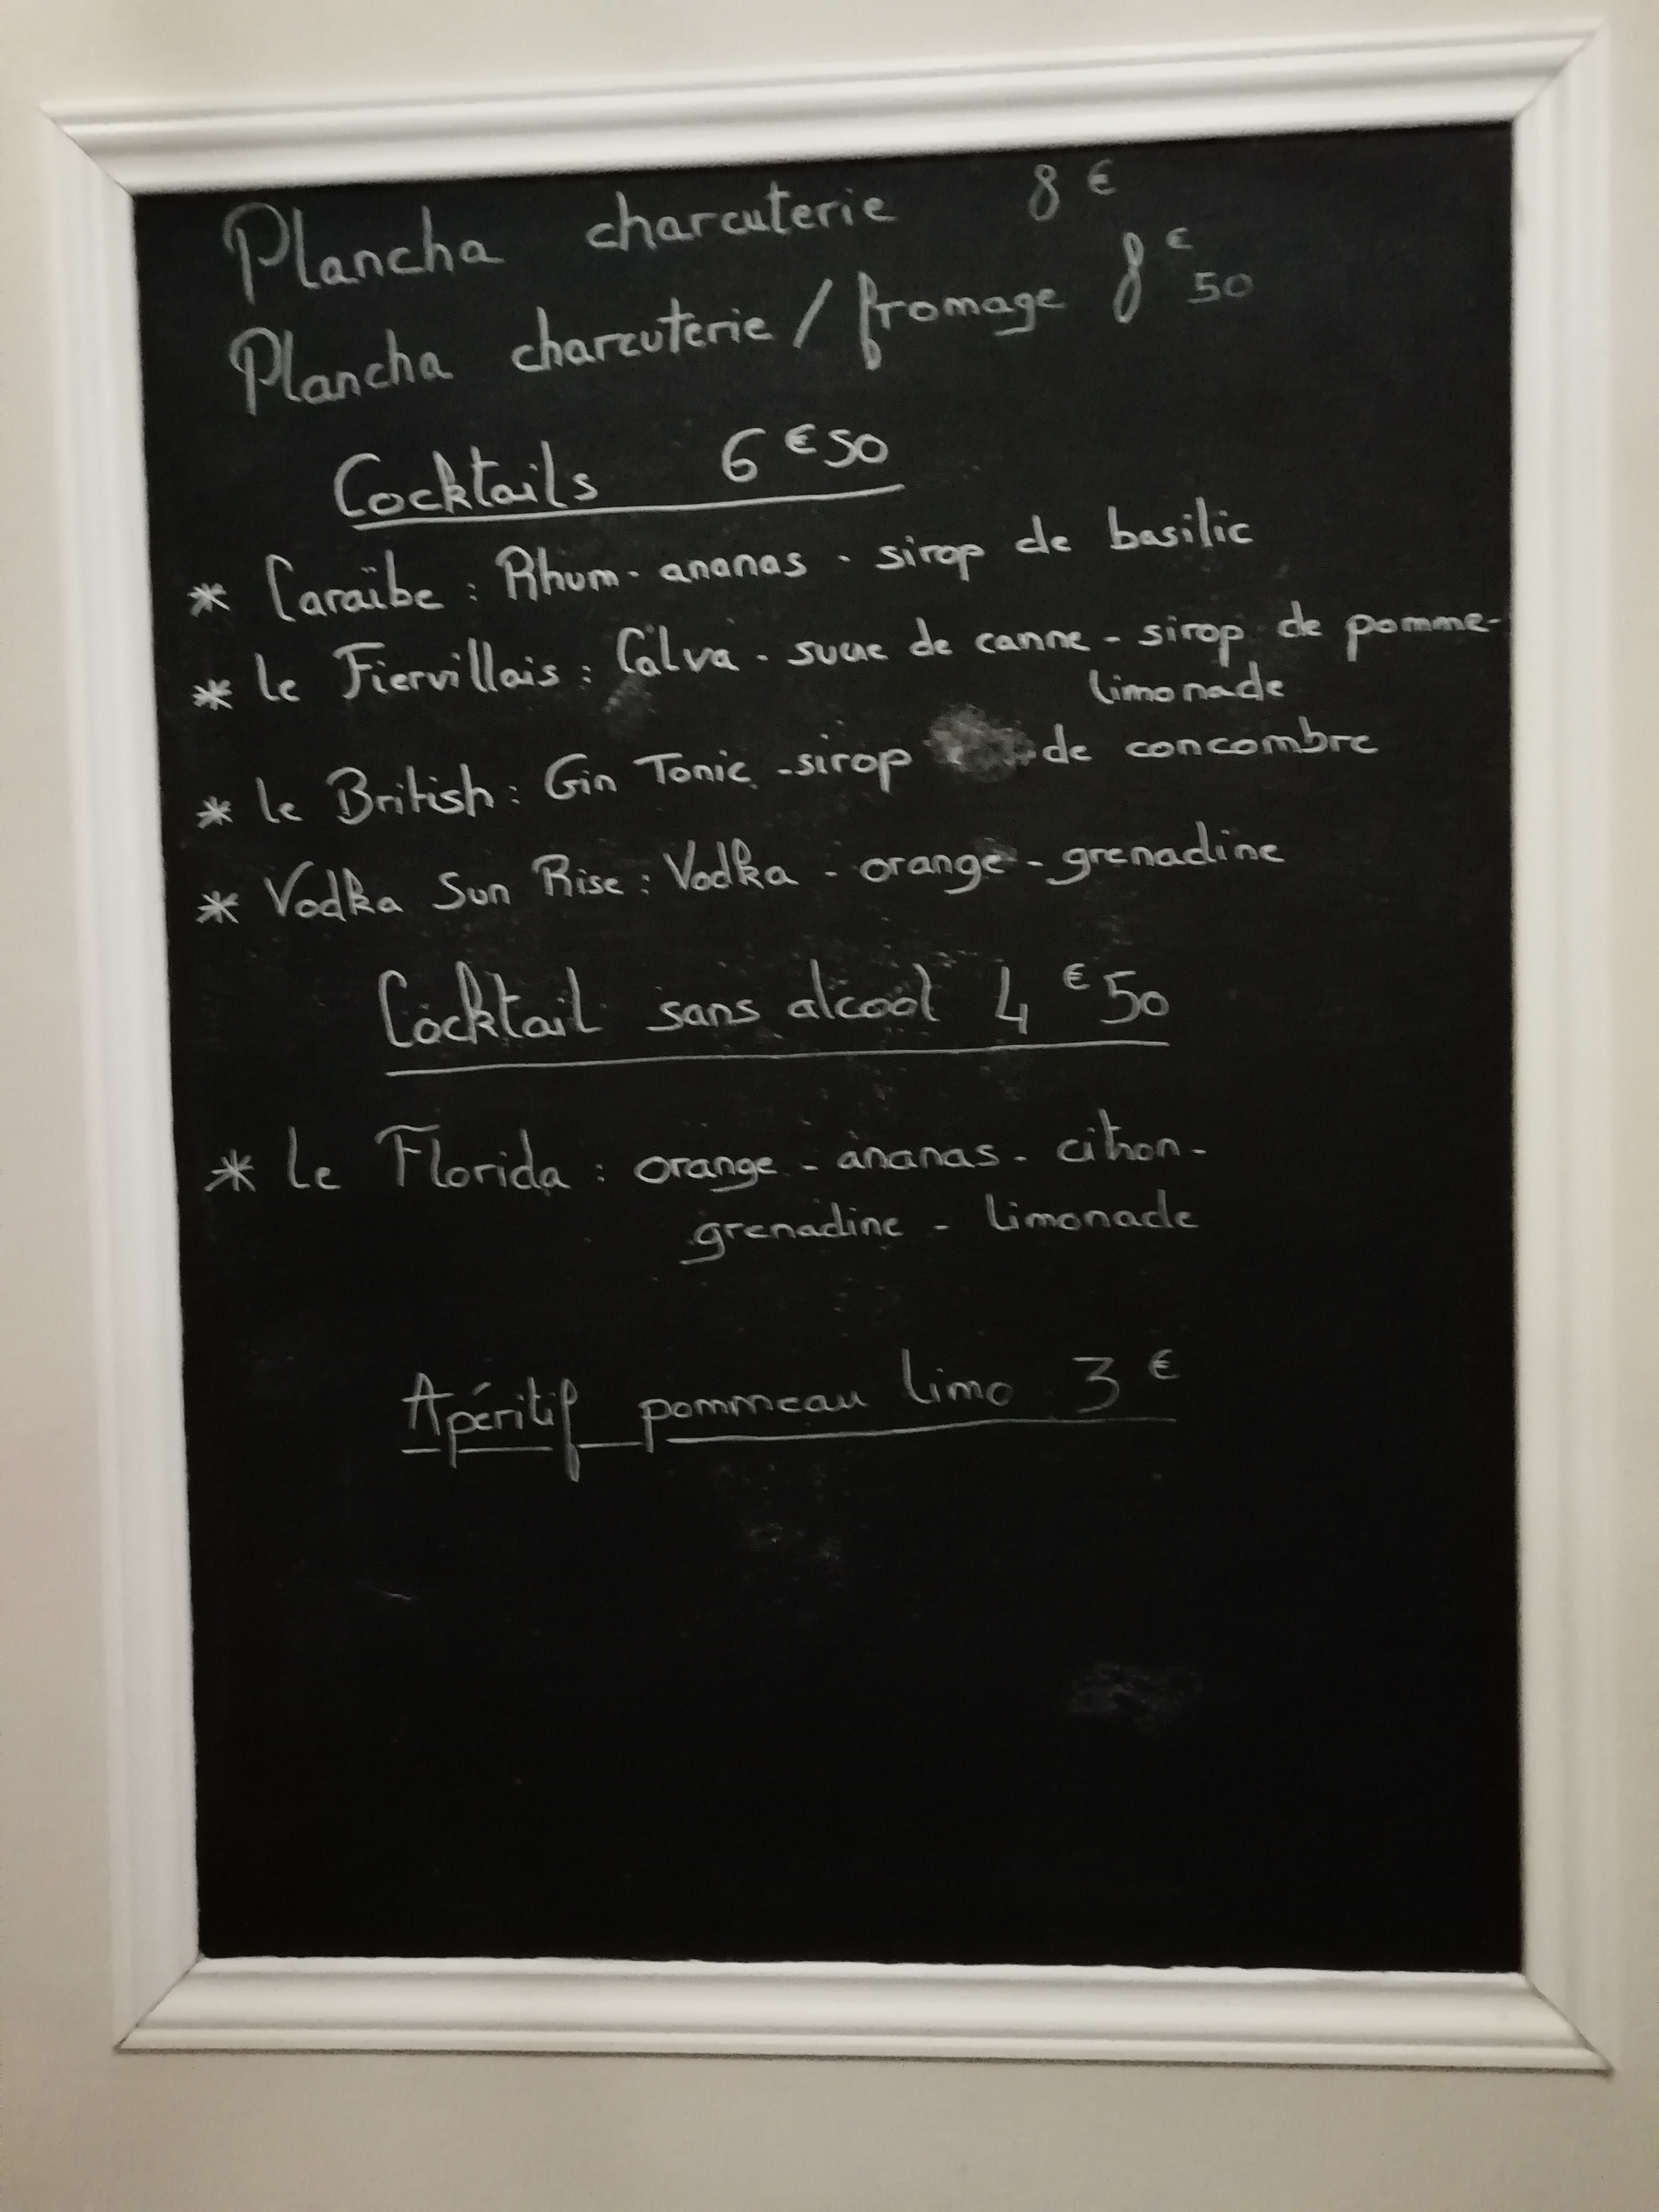 Plancha charcuterie 8 €
Plancha charcuterie / fromage 8 € 50
Cocktails 6 € 50
* Caraïbe : Rhum - ananas - sirop de basilic
* Le Fiervillais : Calva - sucre de canne - sirop de pomme -
limonade
* Le British : Gin Tonic - sirop de concombre
* Vodka Sun Rise : Vodka - orange - grenadine
Cocktail sans alcool 4 € 50
* Le Florida : orange - ananas - citron -
grenadine - limonade
Apéritif pommeau limo 3 €